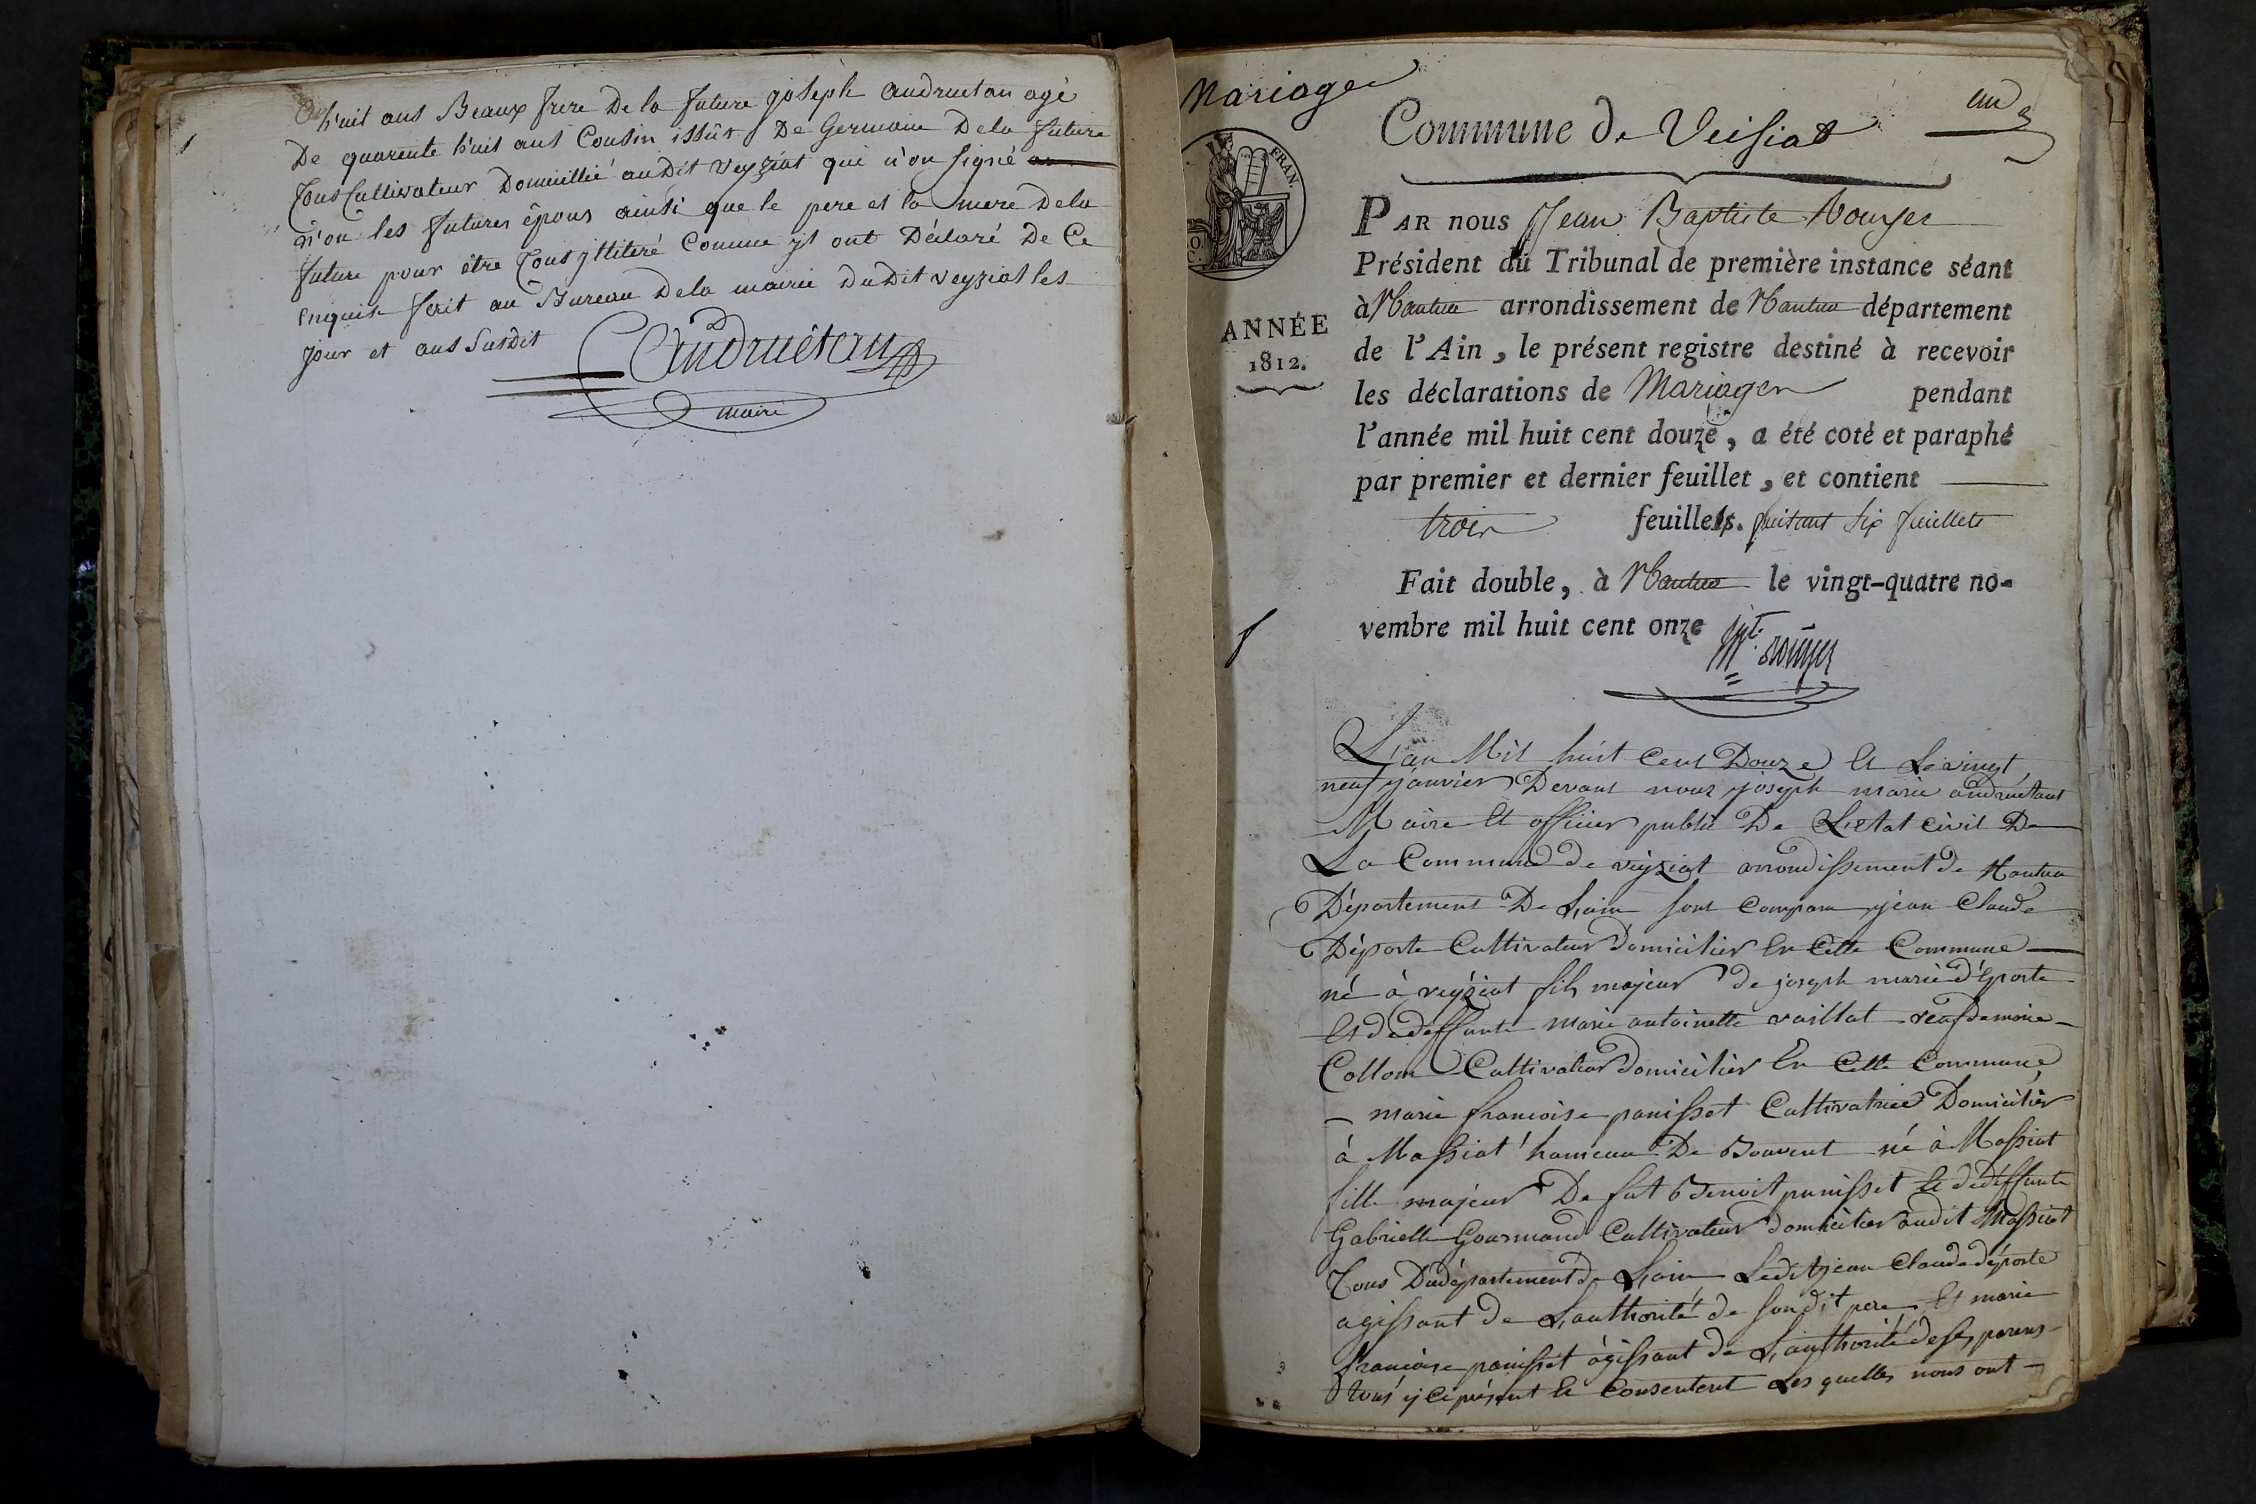 huit ans Beaux frere De la future joseph andruetan agé
De quarente huit ans Cousin issûs De Germain De la future
Tous Cultivateur Domicillié audit Veyziat qui n'on signé
n'on les futures épous ainsi que le pere et la mere Dela
future pour être Tous yllitéré Comme ys ont Déclaré De Ce
enquis ferit au Bureau Dela mairie DuDit veyziat les
jour et ans Susdit
Candruétan
maire
Mariages
Commune de Veisiat
un
FRAN.
ANNÉE
1812.
PAR nous Jean Baptiste
Président du Tribunal de première instance séant
à Nantua arrondissement de Nantua département
de l'Ain, le présent registre destiné à recevoir
les déclarations de Mariages pendant
l'année mil huit cent douze, a été coté et paraphé
par premier et dernier feuillet, et contient
trois feuillets. faisant six feuillets
Fait double, à Nantua le vingt-quatre no-
vembre mil huit cent onze
L'an Mil huit Cent Douze Et Le vingt
neuf janvier Devant nous joseph marie andruétant
Maire Et officier public De L'Etat civil De
La Commune de veÿziat arrondissement de Nantua
Département De Lain sont Comparu jean Claude
Déporte Cultivateur Domicilier En Cette Commune
né à veÿziat fils majeur de joseph marie déporte
Et de deffunte marie antoinette vaillat veuf de marie
Collom Cultivateur Domicilier En Cette Commune
marie francoise panisset Cultivatrice Domicilier
à Massiat hameau De Bouvent né à Massiat
fille majeur De fut Benoit panisset Et de deffunte
Gabrielle Gourmand Cultivateur domicilier audit Massiat
Tous Du département de Lain Ledit jean Claude déporte
agissant de L'authorité de son dit pere Et marie
francoise panisset agissant de L'authorité de ses parens
tous y ci présent Et Consentent Les quelles nous ont